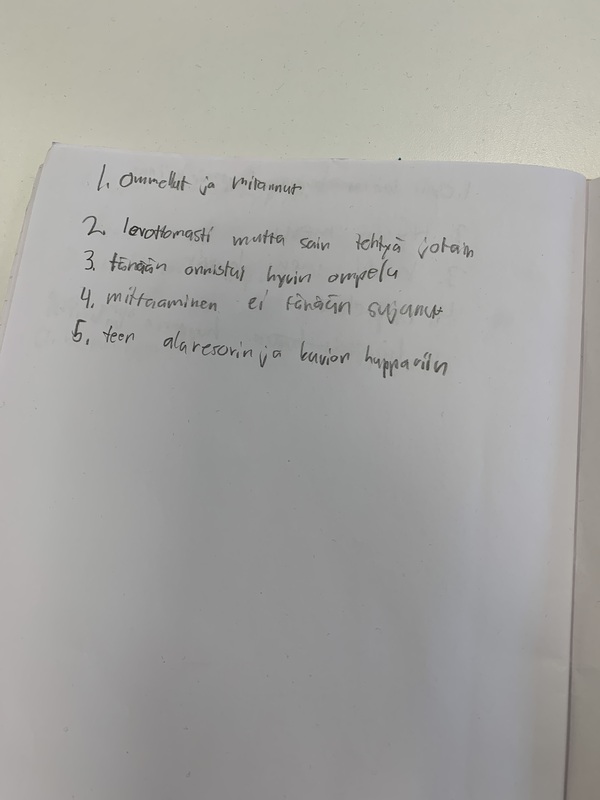 1. ommellut ja mitannut
2. levottomasti mutta sain tehtyä jotain
3. tänään onnistui hyvin ompelu
4. mittaaminen ei tänään sujunut
5. teen alaresorin ja kuvion huppariin